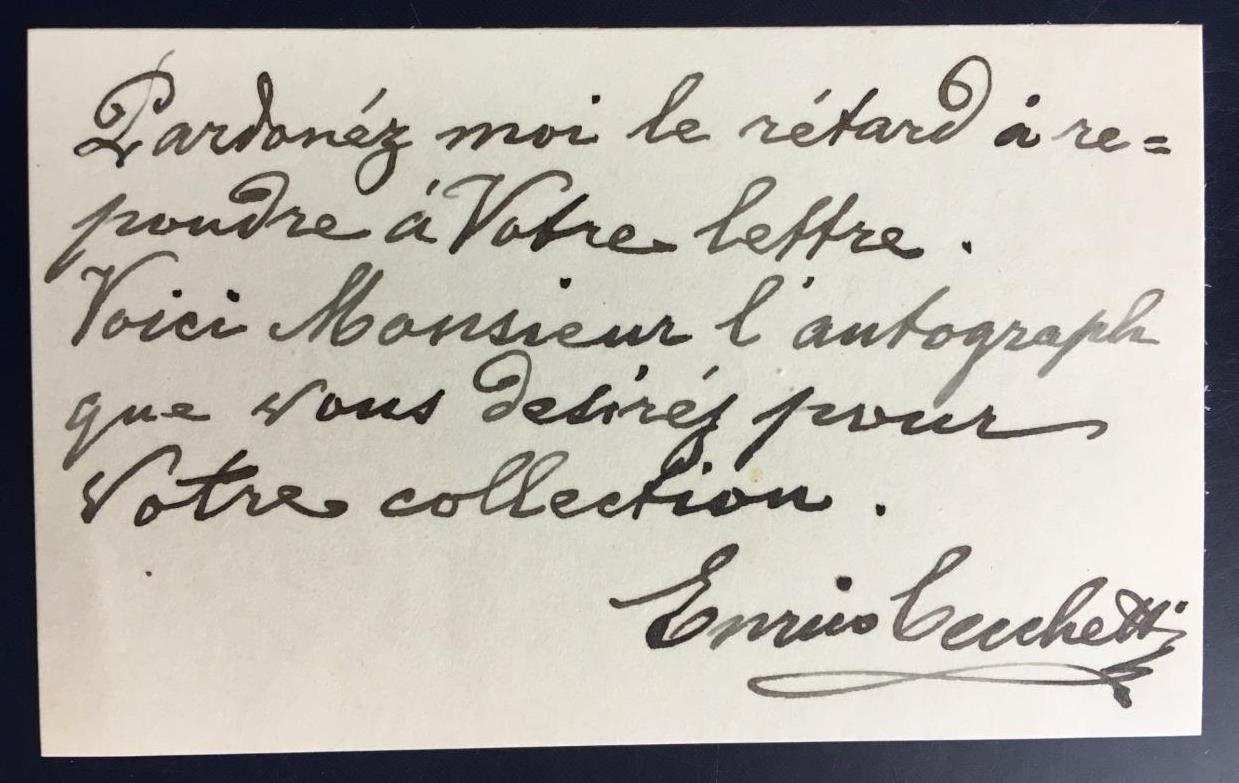 Pardonéz moi le rétard à re=
pondre á Votre lettre.
Voici Monsieur l'autograph
que vous desiréz pour
Votre collection.
Enrico Cecchetti